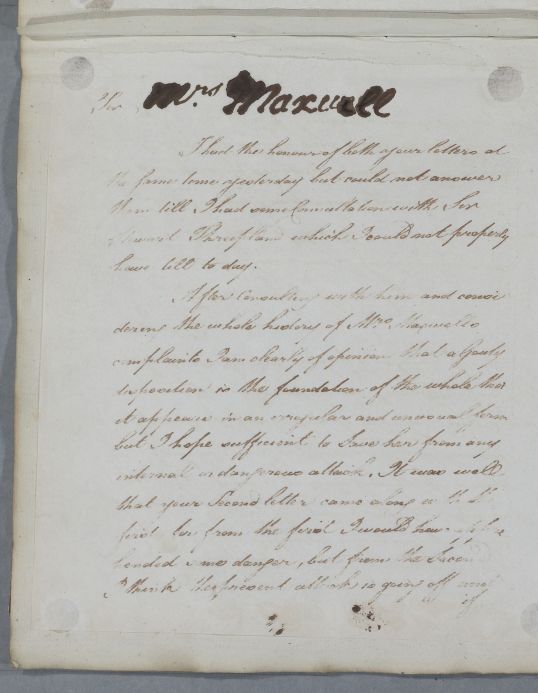 Sir Mrs Maxwell
I had the honour of both your letters at
the same time yesterday but could not answer
them till I had some Consultation with Sir
Stewart Threipland which I could not properly
have till to day.
After Consulting with him and consi
dering the whole history of Mrs Maxwells
complaints I am clearly of opinion that a Gouty
disposition is the foundation of the whole tho
it appears in an irregular and unusual form
but I hope sufficient to Save her from any
internal or dangerous attack. It was well
that your Second letter came along with the
first for from the first I would have
hended some danger, but from the Second
I think the present attack is going off and
if